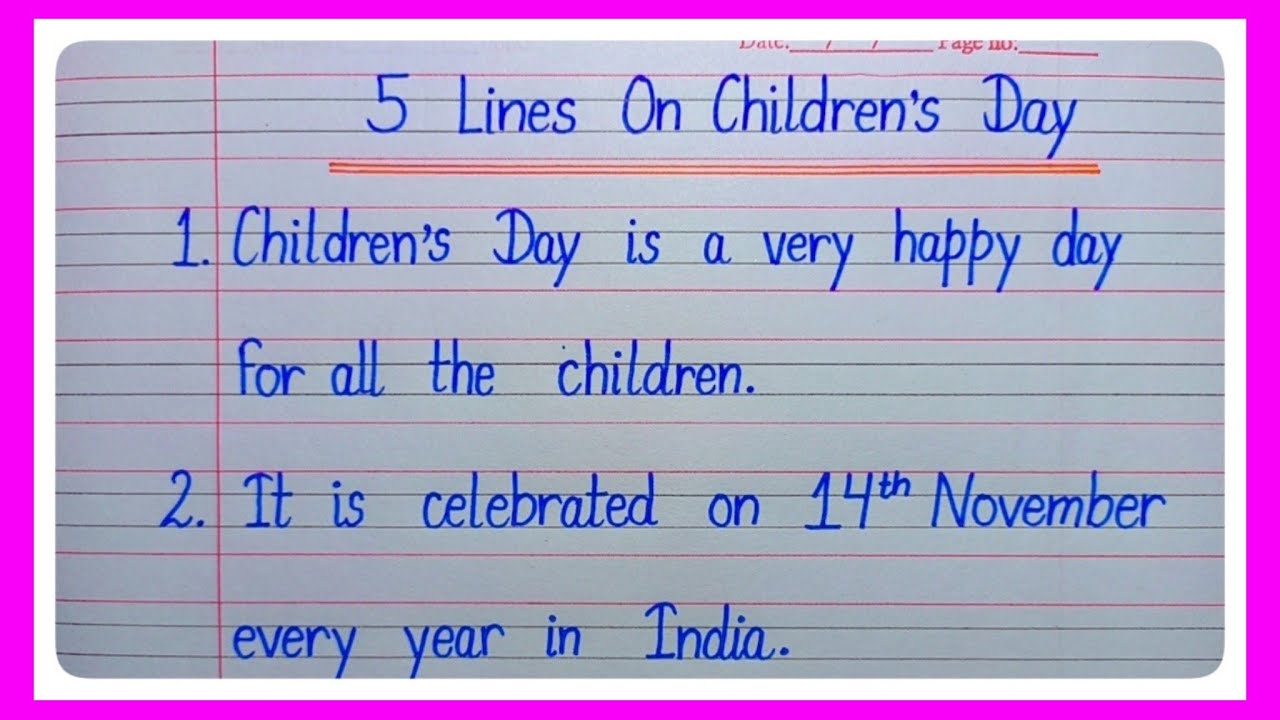 Date:___/___/___ Page no:______
5 Lines On Children's Day
1. Children's Day is a very happy day
for all the children.
2. It is celebrated on 14th November
every year in India.